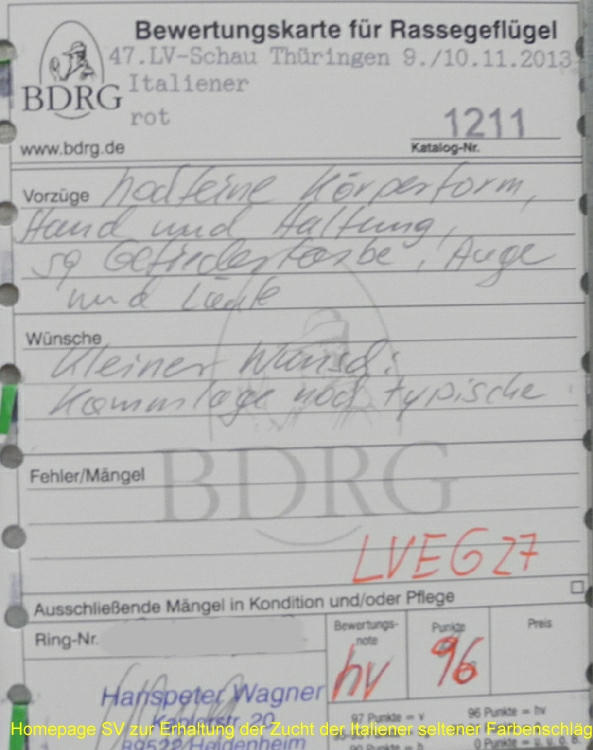 Bewertungskarte für Rassegeflügel
47.LV-Schau Thüringen 9./10.11.2013
BDRG Italiener
rot
1211
www.bdrg.de Katalog-Nr.
Vorzüge hochfeine Körperform,
Stand und Haltung,
sg Gefiederfarbe, Auge
und Läufe
Wünsche
Kleiner Wunsch:
Kammlage noch typischer
Fehler/Mängel
BDRG
LVEG 27
Ausschließende Mängel in Kondition und/oder Pflege
Ring-Nr. Bewertungs-note Punkte Preis
hv 96
Hanspeter Wagner
97 Punkte = v 96 Punkte = hv
Homepage SV zur Erhaltung der Zucht der Italiener seltener Farbenschläg
89522 Heidenheim